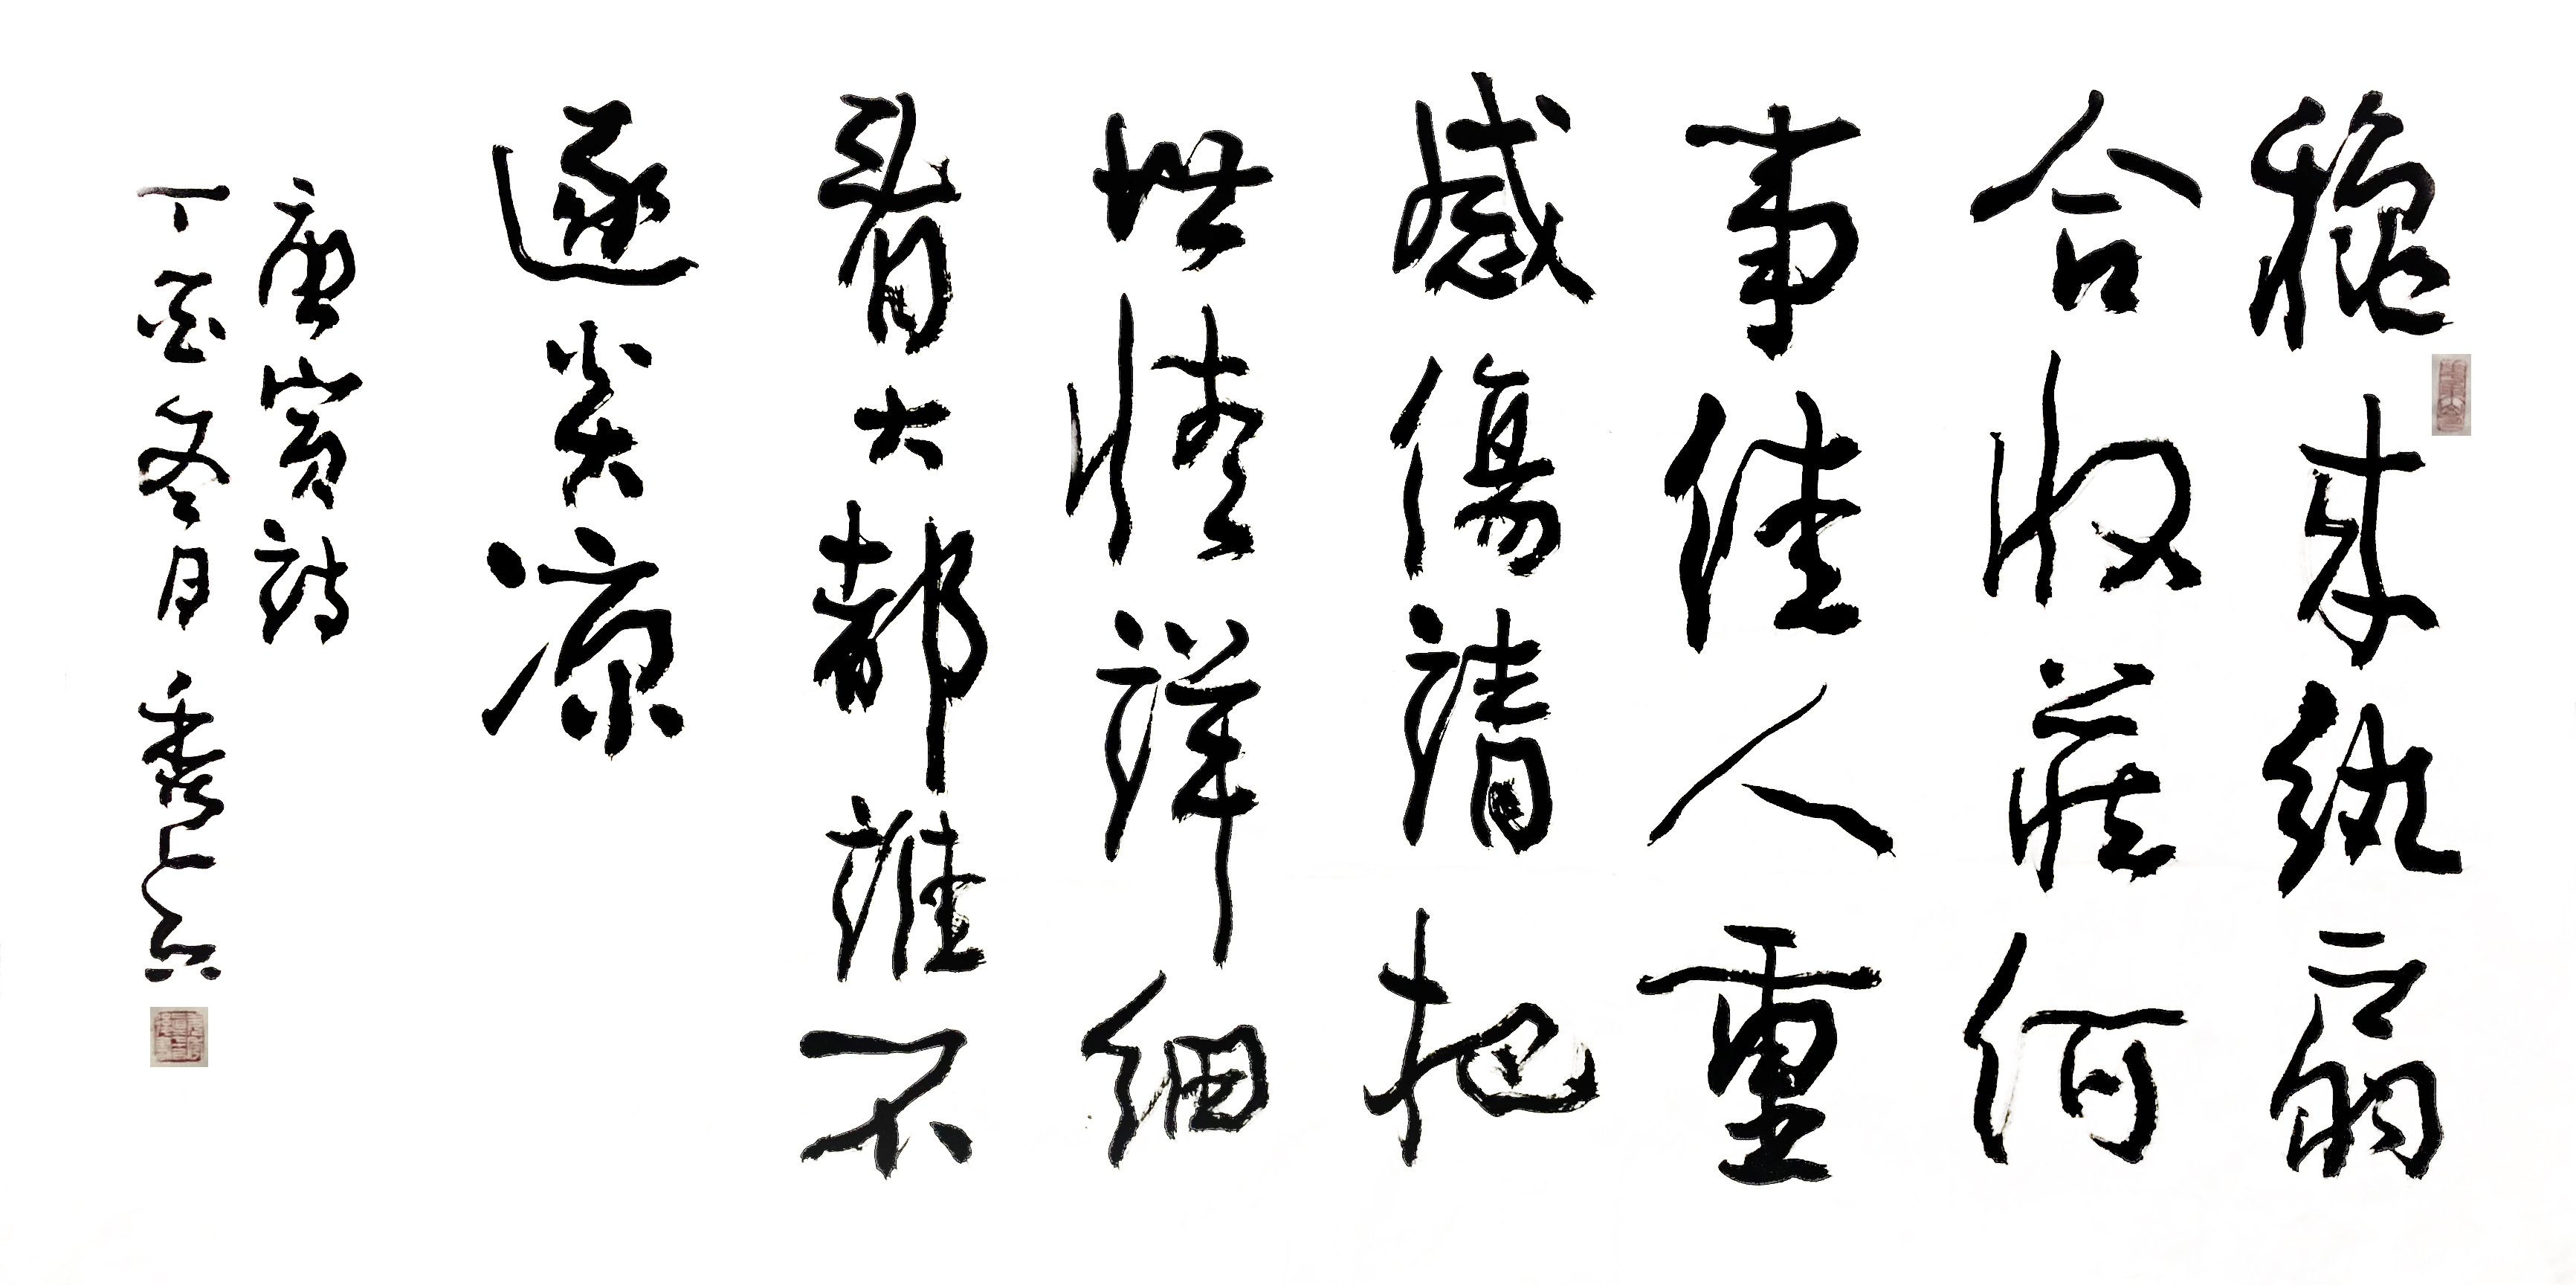 龝来紈扇
合收藏何
事佳人重
感傷請把
世情詳細
看大都誰不
逐炎凉
唐寅詩
丁酉冬月